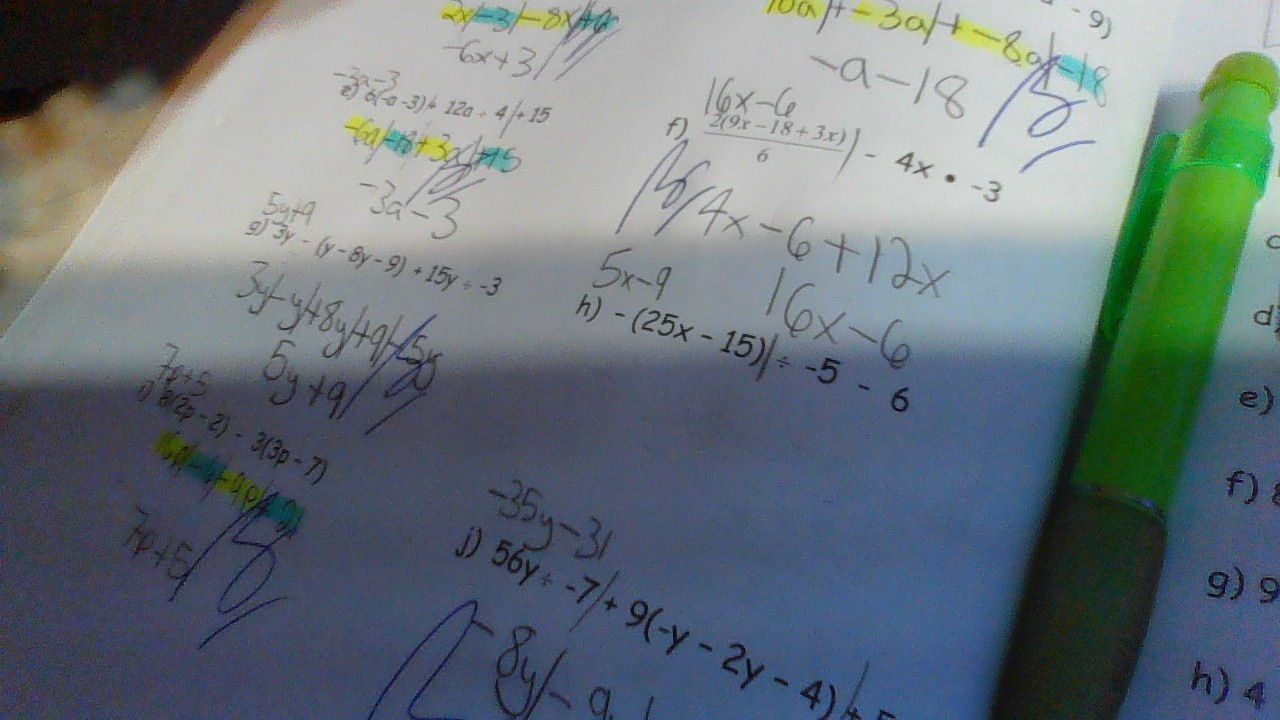 2x -3 - 8x +6
-6x+3
-3a-3
e) 6(-a-3) + 12a ÷ 4 + 15
-6a -18 +3a +15
-3a-3
5y+9
g) 3y - (y - 8y - 9) + 15y ÷ -3
3y-y+8y+9-5y
5y+9
7p+5
i) 8(2p - 2) - 3(3p - 7)
7p+5
- 9)
10a + -3a + -8a -18
-a-18
16x-6
f) 2(9x - 18 + 3x)
6
- 4x • -3
4x-6+12x
16x-6
5x-9
h) -(25x - 15) ÷ -5 - 6
-35y-31
j) 56y ÷ -7 + 9(-y - 2y - 4) +
-8y - 9
c
d)
e)
f) 8
g) 9
h) 4